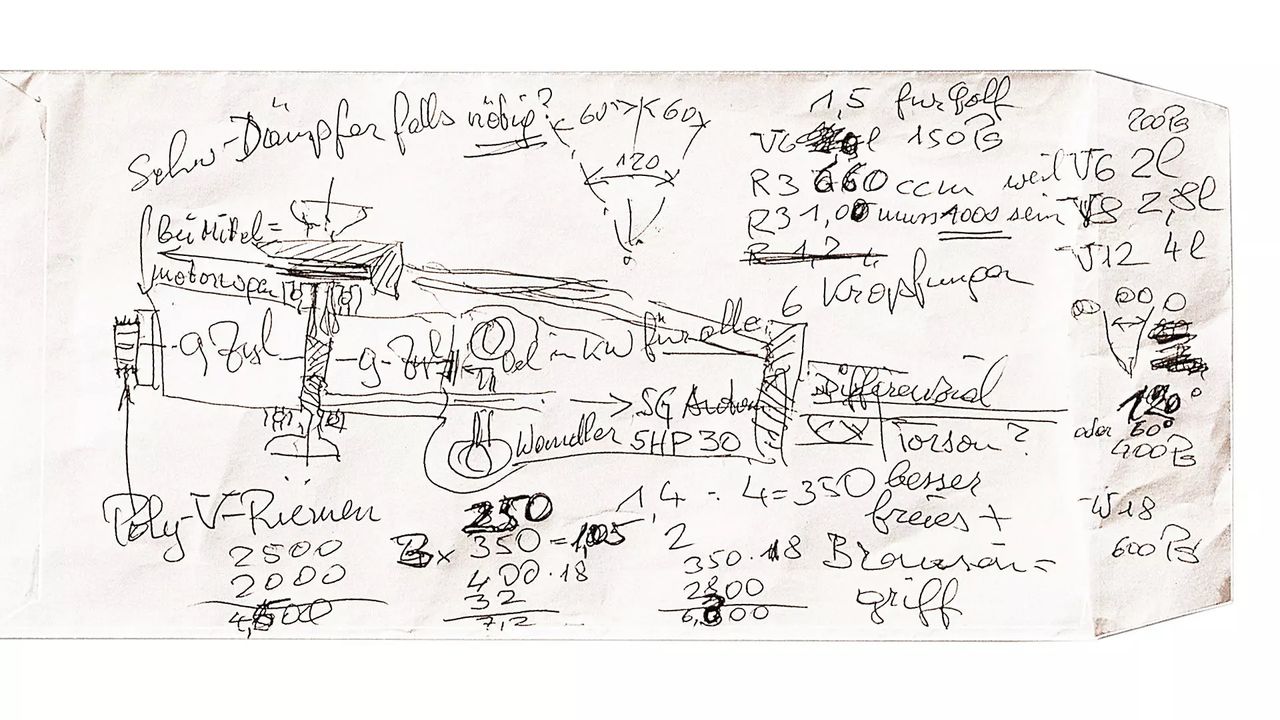 Schw-Dämpfer falls nötig?
60° 60
120
1,5 für Golf
V6 150 PS
R3 660 ccm weil
R3 1,00 muss 1000 sein
R 1,2
6 Kröpfungen
200 PS
V6 2l
V8 2,8l
V12 4l
120°
oder 60°
400 PS
W18
600 PS
Bei Mittel=
motor
9 Zyl
9-Zyl
in KW für alle
5G Autom
Wandler 5HP30
Differenzial
Torsen?
besser
freies +
Browsen=
griff
Poly-V-Riemen
2500
2000
250
3 x 350 = 1,05
400 · 18
32
7,2
1,4 : 4 = 350
2
350 · 18
2800
6,300